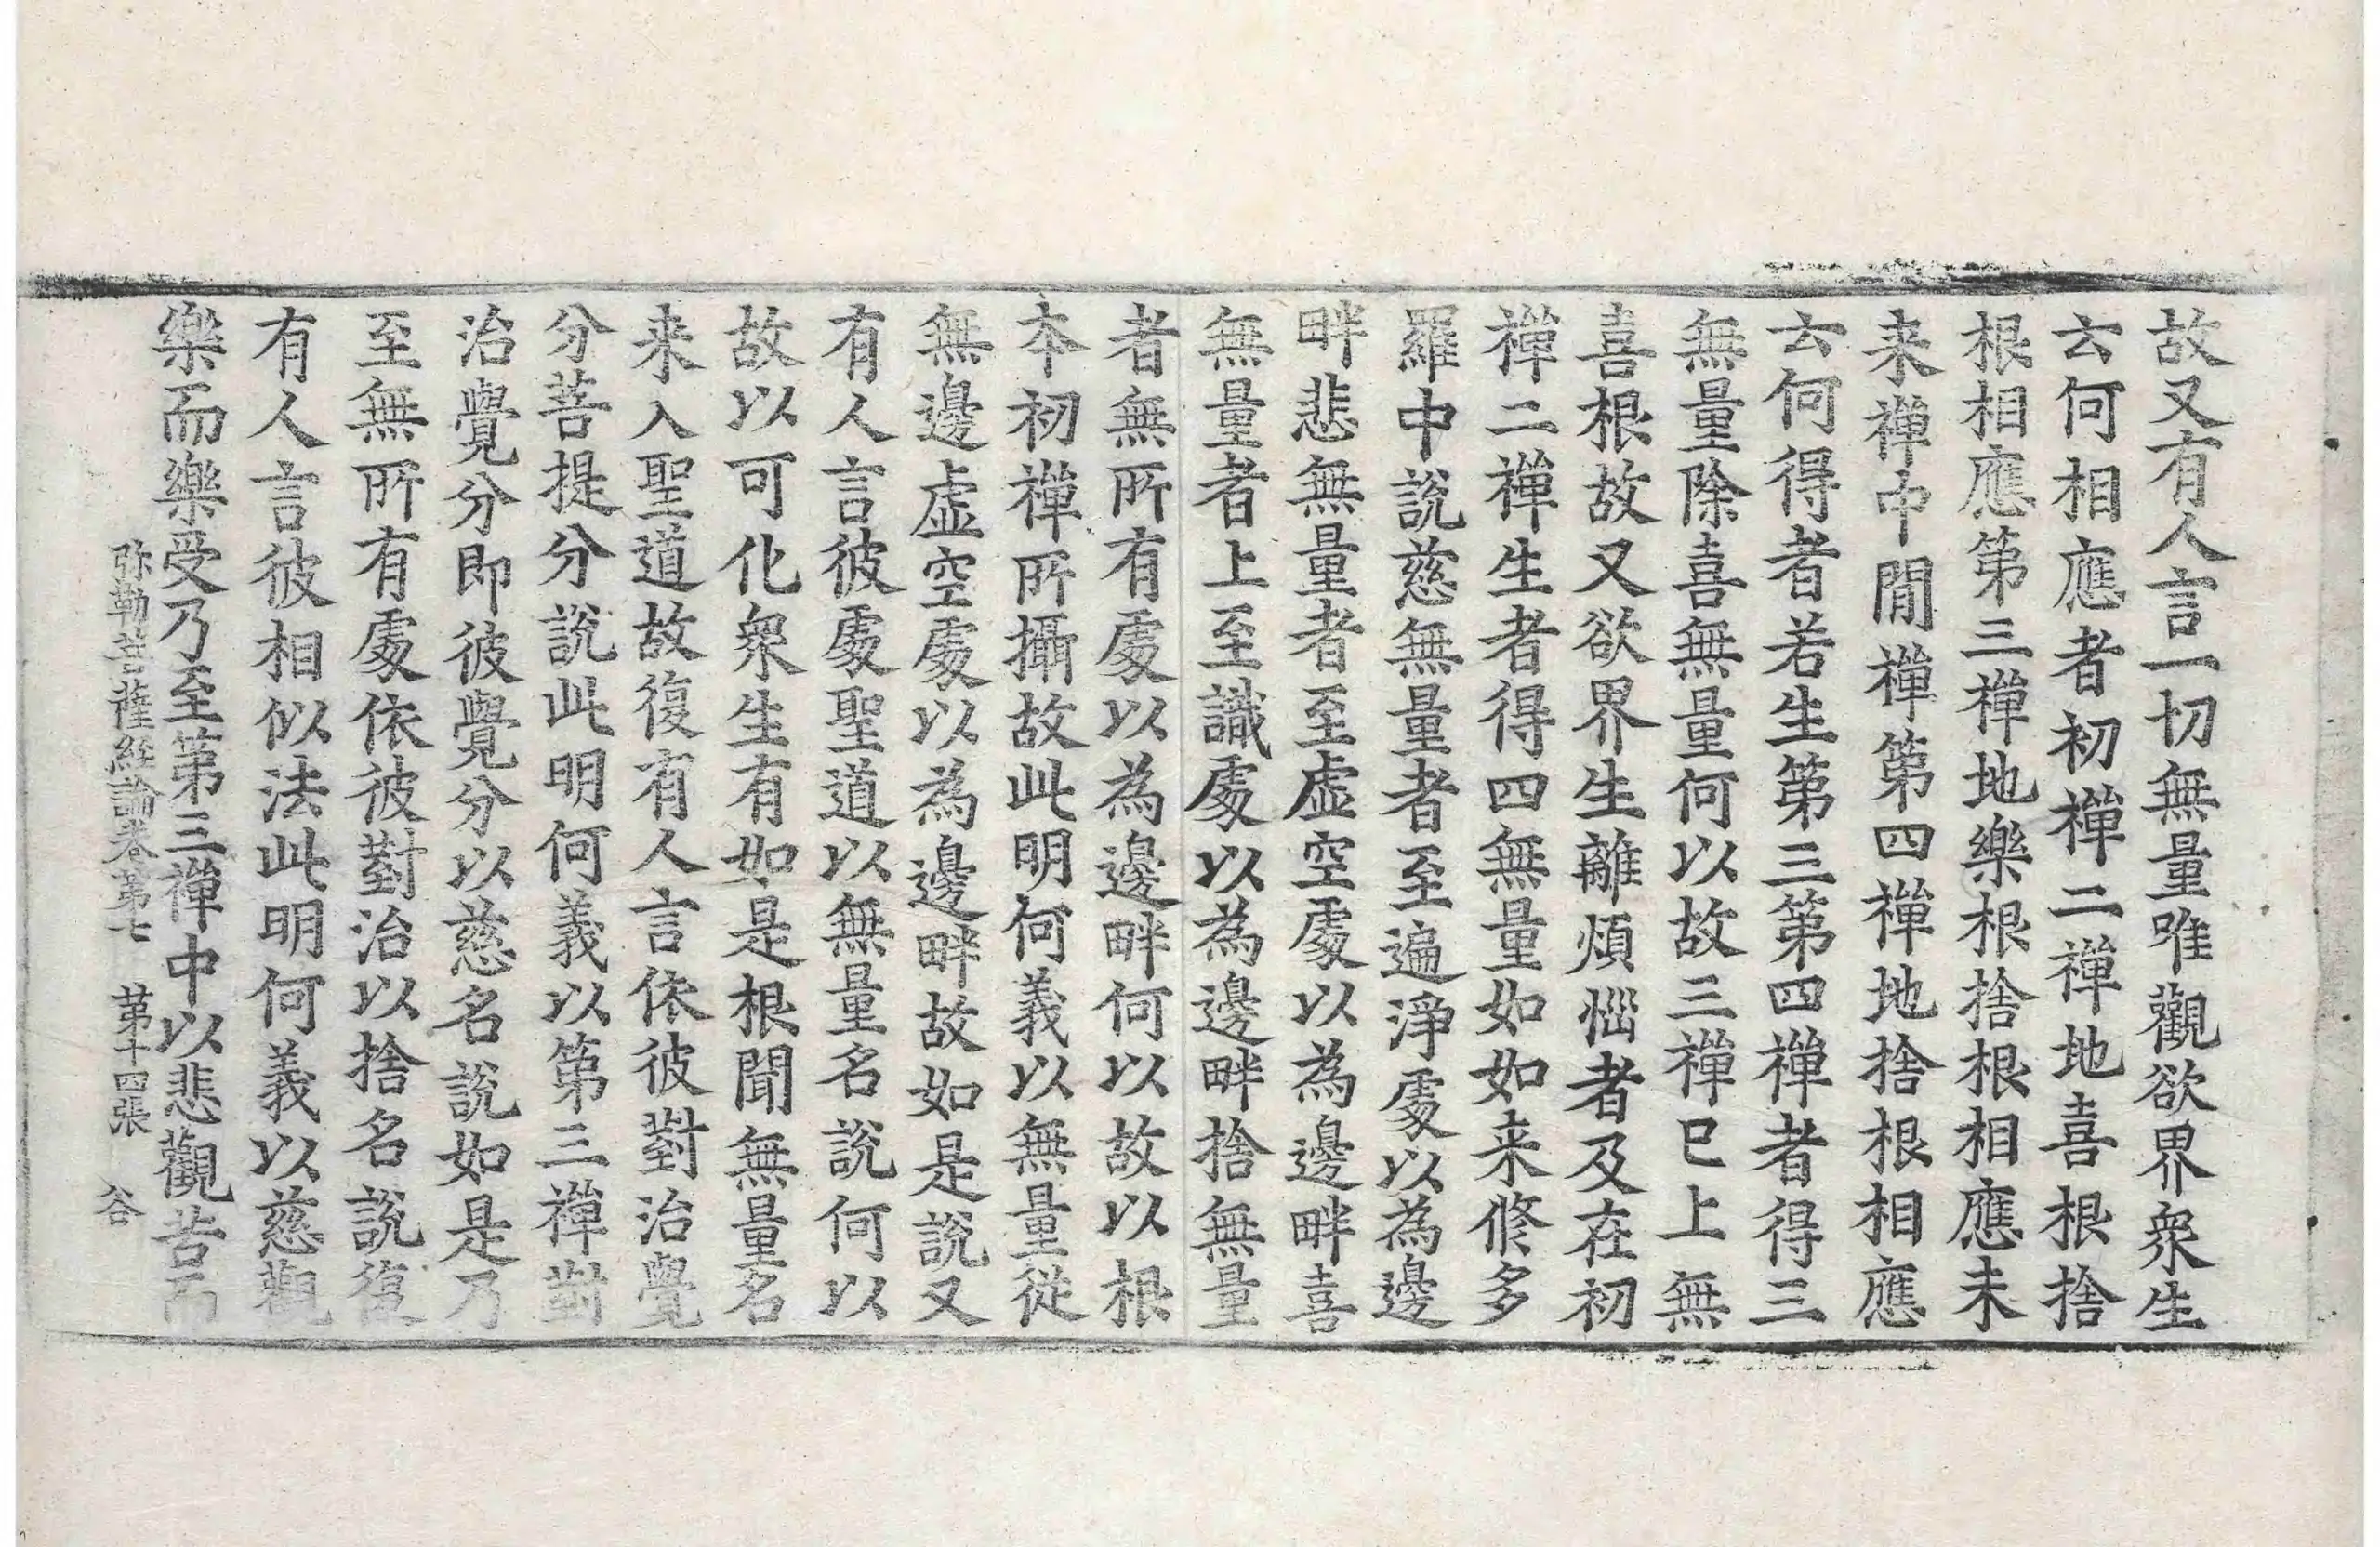 故又有人言一切無量唯觀欲界衆生
云何相應者初禪二禪地喜根捨
根相應第三禪地樂根捨根相應未
来禪中間禪第四禪地捨根相應
云何得者若生第三第四禪者得三
無量除喜無量何以故三禪已上無
喜根故又欲界生離煩惱者及在初
禪二禪生者得四無量如如来修多
羅中說慈無量者至遍淨處以為邊
畔悲無量者至虛空處以為邊畔喜
無量者上至識處以為邊畔捨無量
者無所有處以為邊畔何以故以根
本初禪所攝故此明何義以無量従
無邊虛空處以為邊畔故如是說又
有人言彼處聖道以無量名說何以
故以可化衆生有如是根聞無量名
来入聖道故復有人言依彼對治覺
分菩提分說此明何義以第三禪對
治覺分即彼覺分以慈名說如是乃
至無所有處依彼對治以捨名說復
有人言彼相似法此明何義以慈觀
樂而樂受乃至第三禪中以悲觀苦而
弥勒菩薩経論卷第七 第十四張 谷